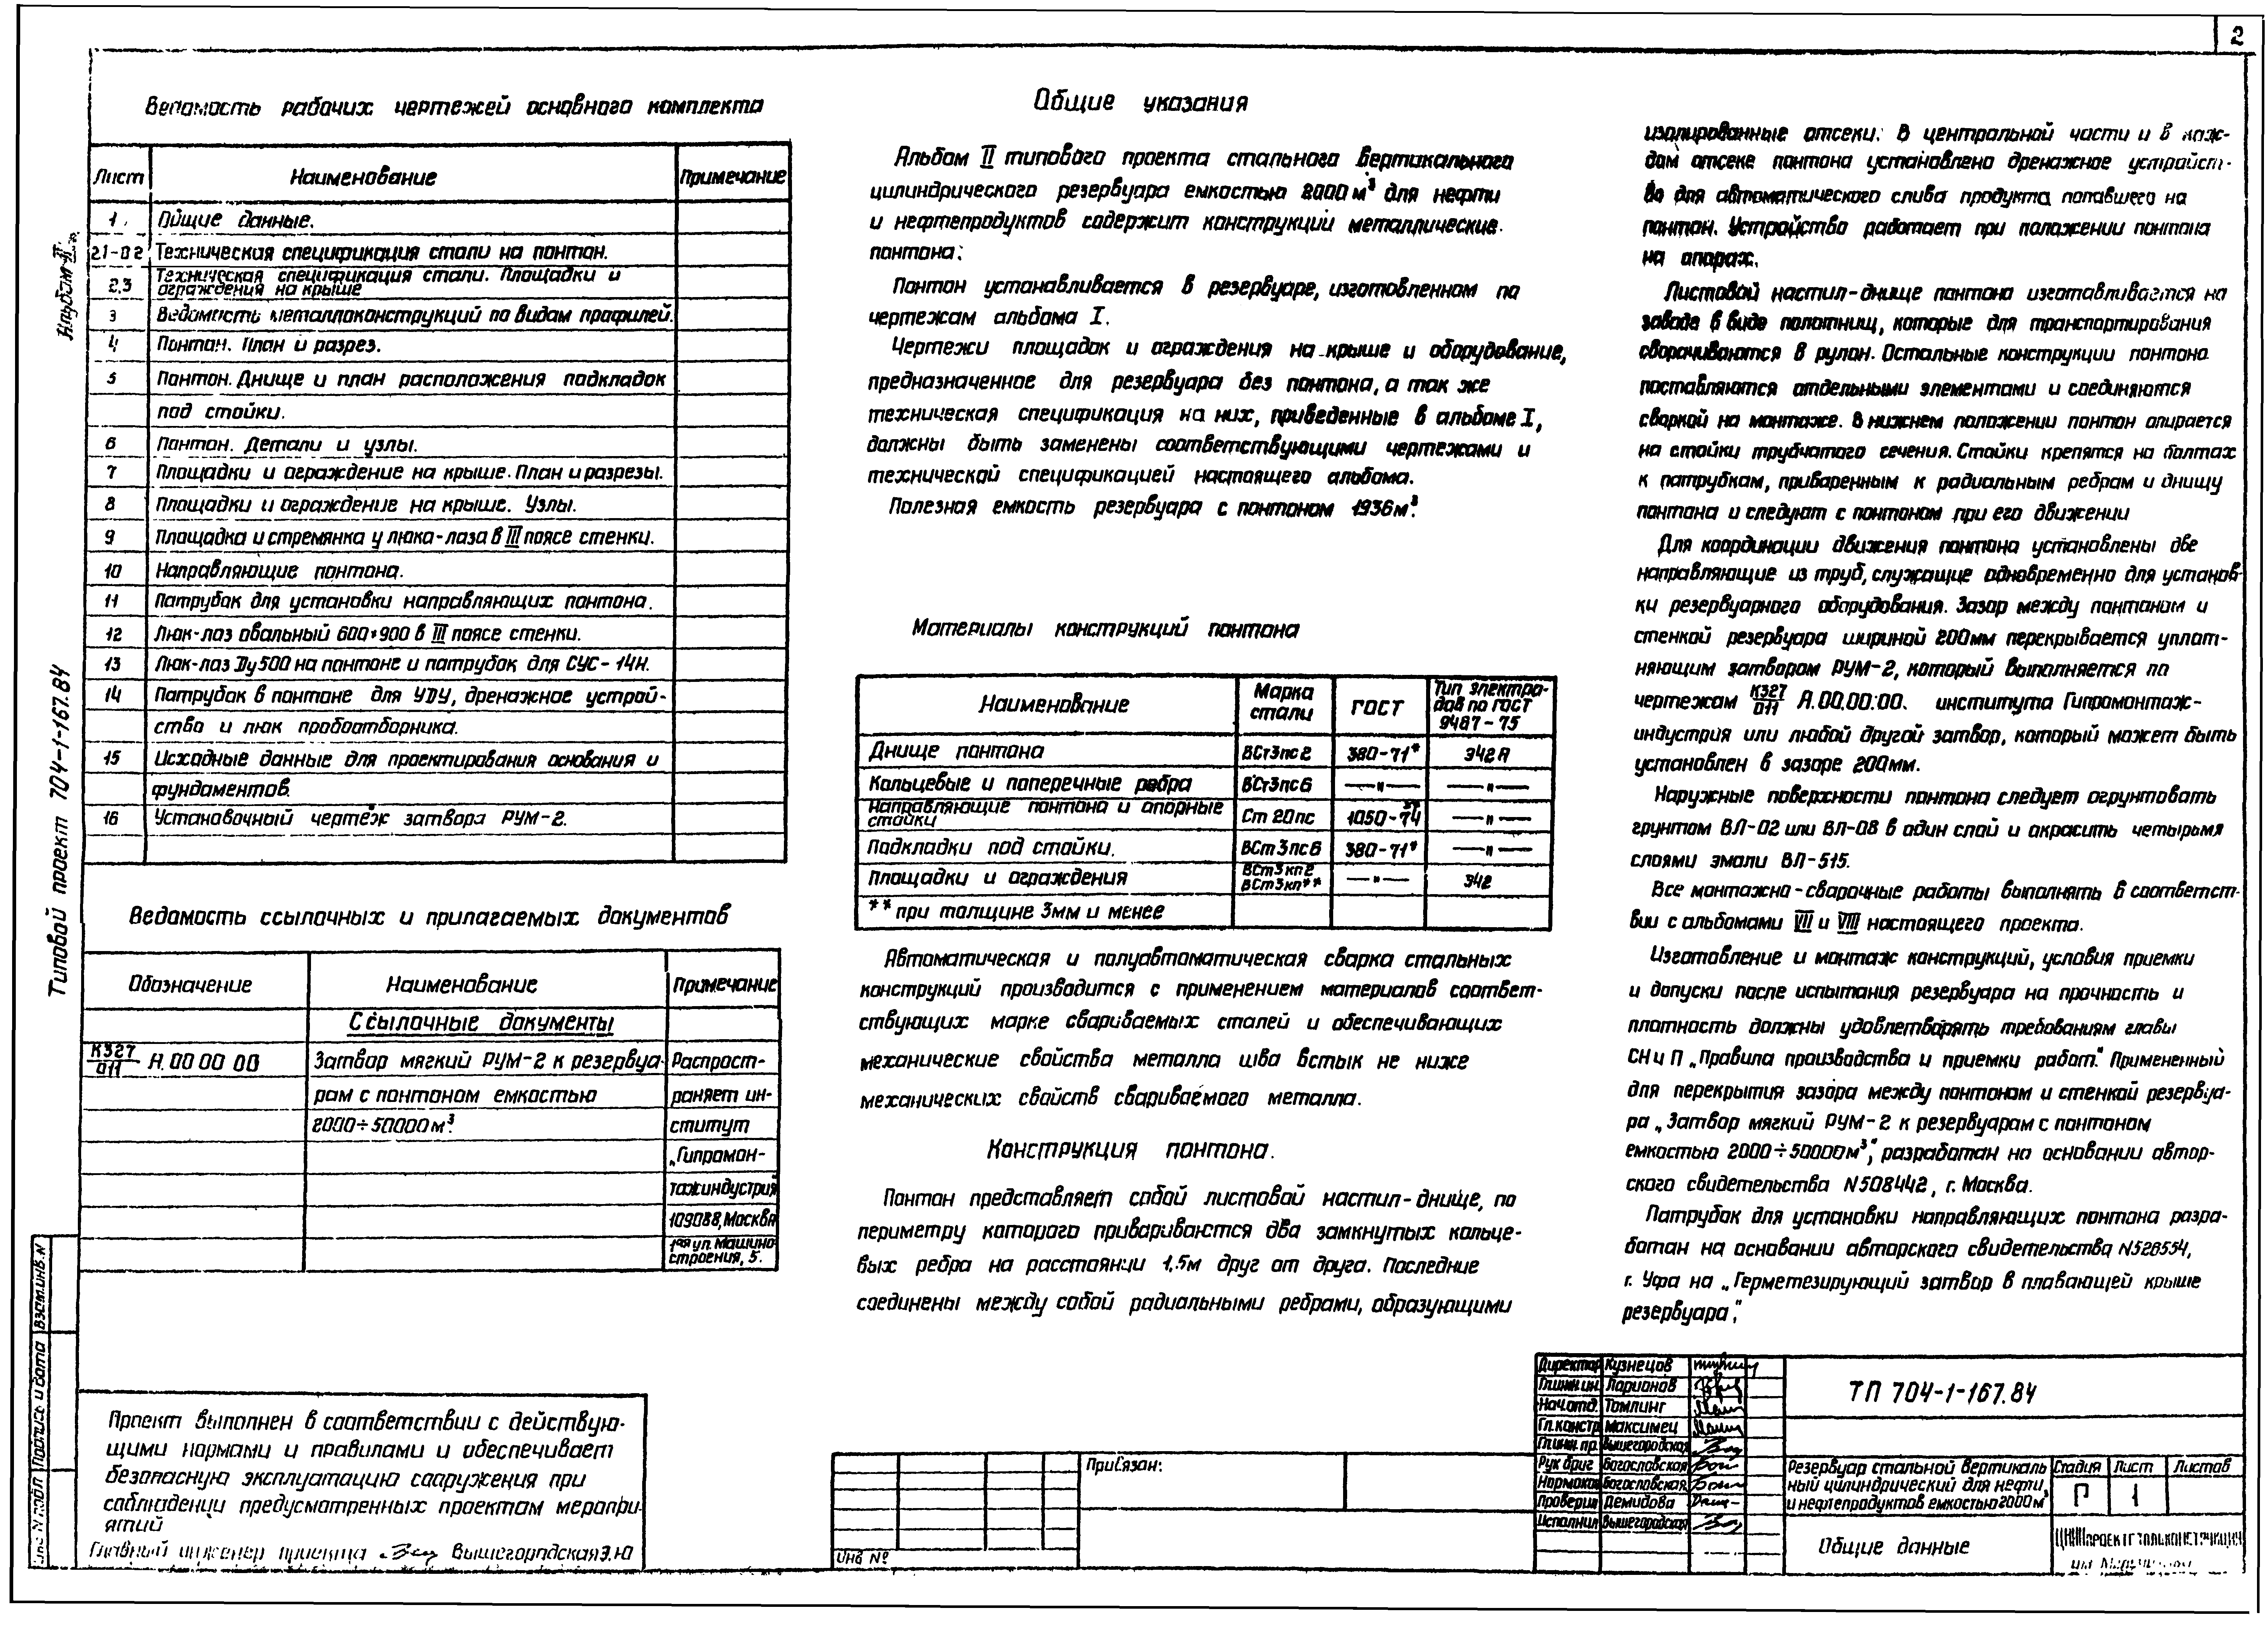 2
Ведомость рабочих чертежей основного комплекта
Лист Наименование Примечание
1 Общие данные.
2.1-02 Техническая спецификация стали на понтон.
2.3 Техническая спецификация стали. Площадки и
ограждения на крыше
3 Ведомость металлоконструкций по видам профилей.
4 Понтон. План и разрез.
5 Понтон. Днище и план расположения подкладок
под стойки.
6 Понтон. Детали и узлы.
7 Площадки и ограждение на крыше. План и разрезы.
8 Площадки и ограждение на крыше. Узлы.
9 Площадка и стремянка у люка-лаза в III поясе стенки.
10 Направляющие понтона.
11 Патрубок для установки направляющих понтона.
12 Люк-лаз овальный 600*900 в III поясе стенки.
13 Люк-лаз Ду500 на понтоне и патрубок для СУС-14Н.
14 Патрубок в понтоне для УДУ, дренажное устрой-
ство и люк пробоотборника.
15 Исходные данные для проектирования основания и
фундаментов.
16 Установочный чертёж затвора РУМ-2.
Ведомость ссылочных и прилагаемых документов
Обозначение Наименование Примечание
Ссылочные документы
К327/011 А.00 00 00 Затвор мягкий РУМ-2 к резервуа- Распрост-
рам с понтоном емкостью раняет ин-
2000÷50000м³. ститут
„Гипромон-
тажиндустрия
109088, Москва
1ая ул. Машино-
строения, 5.
Проект выполнен в соответствии с действую-
щими нормами и правилами и обеспечивает
безопасную эксплуатацию сооружения при
соблюдении предусмотренных проектом меропри-
ятий
Главный инженер проекта Вышегородская Э.Ю
Альбом II
Типовой проект 704-1-167.84
Взам.инв.N
Подпись и дата
Инв N подл
Общие указания
Альбом II типового проекта стального вертикального
цилиндрического резервуара емкостью 2000м³ для нефти
и нефтепродуктов содержит конструкции металлические.
понтона:
Понтон устанавливается в резервуаре, изготовленном по
чертежам альбома I.
Чертежи площадок и ограждения на крыше и оборудование,
предназначенное для резервуара без понтона, а так же
техническая спецификация на них, приведенные в альбоме I,
должны быть заменены соответствующими чертежами и
технической спецификацией настоящего альбома.
Полезная емкость резервуара с понтоном 1936м³.
Материалы конструкций понтона
Наименование Марка стали ГОСТ Тип электро-
дов по ГОСТ
9467-75
Днище понтона ВСт3пс2 380-71* Э42А
Кольцевые и поперечные ребра ВСт3пс6 —"— —"—
Направляющие понтона и опорные
стойки Ст 20пс 1050-74 —"—
Подкладки под стойки. ВСт3пс6 380-71* —"—
Площадки и ограждения ВСт3кп2
ВСт3кп** —"— Э42
** при толщине 3мм и менее
Автоматическая и полуавтоматическая сварка стальных
конструкций производится с применением материалов соответ-
ствующих марке свариваемых сталей и обеспечивающих
механические свойства металла шва встык не ниже
механических свойств свариваемого металла.
Конструкция понтона.
Понтон представляет собой листовой настил-днище, по
периметру которого привариваются два замкнутых кольце-
вых ребра на расстоянии 1,5м друг от друга. Последние
соединены между собой радиальными ребрами, образующими
изолированные отсеки. В центральной части и в каж-
дом отсеке понтона установлено дренажное устройст-
во для автоматического слива продукта попавшего на
понтон. Устройство работает при положении понтона
на опорах.
Листовой настил-днище понтона изготавливается на
заводе в виде полотнищ, которые для транспортирования
сворачиваются в рулон. Остальные конструкции понтона
поставляются отдельными элементами и соединяются
сваркой на монтаже. В нижнем положении понтон опирается
на стойки трубчатого сечения. Стойки крепятся на болтах
к патрубкам, приваренным к радиальным ребрам и днищу
понтона и следуют с понтоном при его движении
Для координации движения понтона установлены две
направляющие из труб, служащие одновременно для установ-
ки резервуарного оборудования. Зазор между понтоном и
стенкой резервуара шириной 200мм перекрывается уплот-
няющим затвором РУМ-2, который выполняется по
чертежам К327/011 А.00.00.00. института Гипромонтаж-
индустрия или любой другой затвор, который может быть
установлен в зазоре 200мм.
Наружные поверхности понтона следует огрунтовать
грунтом ВЛ-02 или ВЛ-08 в один слой и окрасить четырьмя
слоями эмали ВЛ-515.
Все монтажно-сварочные работы выполнять в соответст-
вии с альбомами VII и VIII настоящего проекта.
Изготовление и монтаж конструкций, условия приемки
и допуски после испытания резервуара на прочность и
плотность должны удовлетворять требованиям главы
СНиП „Правила производства и приемки работ." Примененный
для перекрытия зазора между понтоном и стенкой резервуа-
ра „Затвор мягкий РУМ-2 к резервуарам с понтоном
емкостью 2000÷50000м³", разработан на основании автор-
ского свидетельства N508442, г. Москва.
Патрубок для установки направляющих понтона разра-
ботан на основании авторского свидетельства N528554,
г. Уфа на „Герметезирующий затвор в плавающей крыше
резервуара".
Привязан:
Инв №
Директор Кузнецов
Гл.инж.ин. Ларионов
Нач.отд. Томлинг
Гл.констр Максимец
Гл.инж.пр. Вышегородская
Рук бриг Богословская
Нормокон Богословская
Проверил Демидова
Исполнил Вышегородская
ТП 704-1-167.84
Резервуар стальной вертикаль-
ный цилиндрический для нефти
и нефтепродуктов емкостью 2000м³
Стадия Лист Листов
П 1
Общие данные
ЦНИИпроектстальконструкция
им